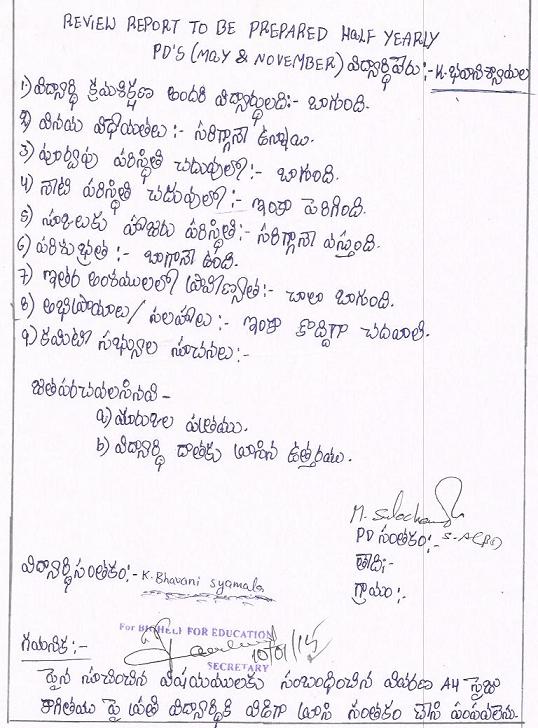 REVIEW REPORT TO BE PREPARED HALF YEARLY
PD'S (MAY & NOVEMBER) విద్యార్థి పేరు:- K. భవాని శ్యామల
1) విద్యార్థి క్రమశిక్షణ అందరి విద్యార్థులది:- బాగుంది.
2) వినయ విధేయతలు:- సరిగ్గానే ఉన్నాయి.
3) పూర్వపు పరిస్థితి చదువులో:- బాగుంది.
4) నాటి పరిస్థితి చదువులో:- ఇంకా పెరిగింది.
5) స్కూలుకు హాజరు పరిస్థితి:- సరిగ్గానే వస్తుంది.
6) పరిశుభ్రత:- బాగానే ఉంది.
7) ఇతర అంశములలో ప్రావీణ్యత:- చాలా బాగుంది.
8) అభిప్రాయాలు/ సలహాలు:- ఇంకా కొద్దిగా చదవాలి.
9) కమిటి సభ్యుల సూచనలు:-
జతపరచవలసినవి-
a) మార్కుల పత్రము.
b) విద్యార్థి దాతకు వ్రాసిన ఉత్తరము.
M. Sulochana
PD సంతకం:-
తేది:-
గ్రామం:-
విద్యార్థి సంతకం:- K. Bhavani Syamala
For BIGHELP FOR EDUCATION
10/01/15
SECRETARY
గమనిక:-
పైన సూచించిన విషయములకు సంబంధించిన వివరణ A4 సైజు
కాగితము పై ప్రతి విద్యార్థికి విడిగా వ్రాసి సంతకం చేసి పంపవలెను.